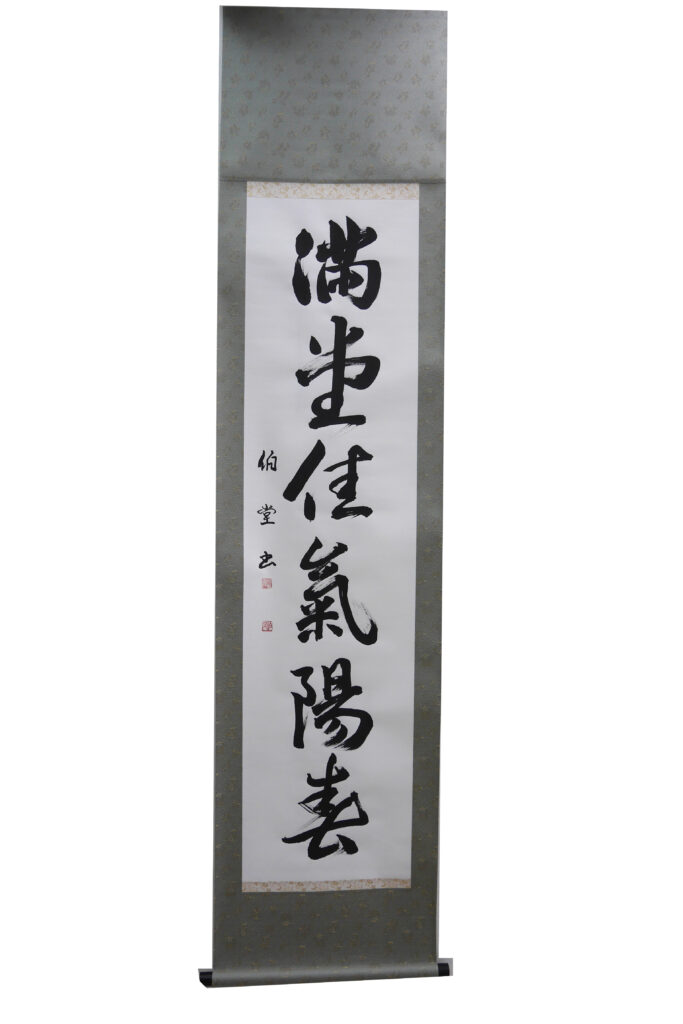 満堂佳氣陽春
伯堂書